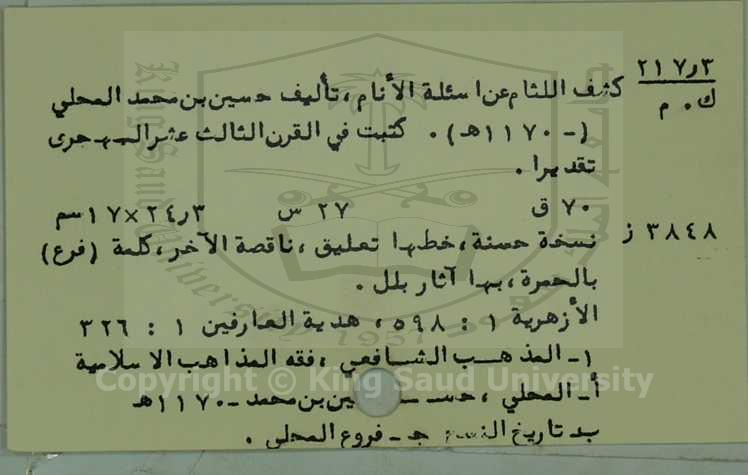 ٢١٧٫٣
ك . م
كشف اللثام عن اسئلة الأنام ، تأليف حسين بن محمد المحلي
( - ١١٧٠هـ ) . كتبت في القرن الثالث عشر الهجرى
تقديرا .
٧٠ ق ٢٧ س ٢٤٫٣×١٧سم
٣٨٤٨ ز
نسخة حسنة ، خطها تعليق ، ناقصة الآخر ، كلمة (فرع)
بالحمرة ، بها آثار بلل .
الأزهرية ١ : ٥٩٨ ، هدية العارفين ١ : ٣٢٦
١- المذهب الشافعي ، فقه المذاهب الاسلامية
أ- المحلي ، حسين بن محمد - ١١٧٠هـ
ب- تاريخ النسخ جـ - فروع المحلي .
Copyright © King Saud University